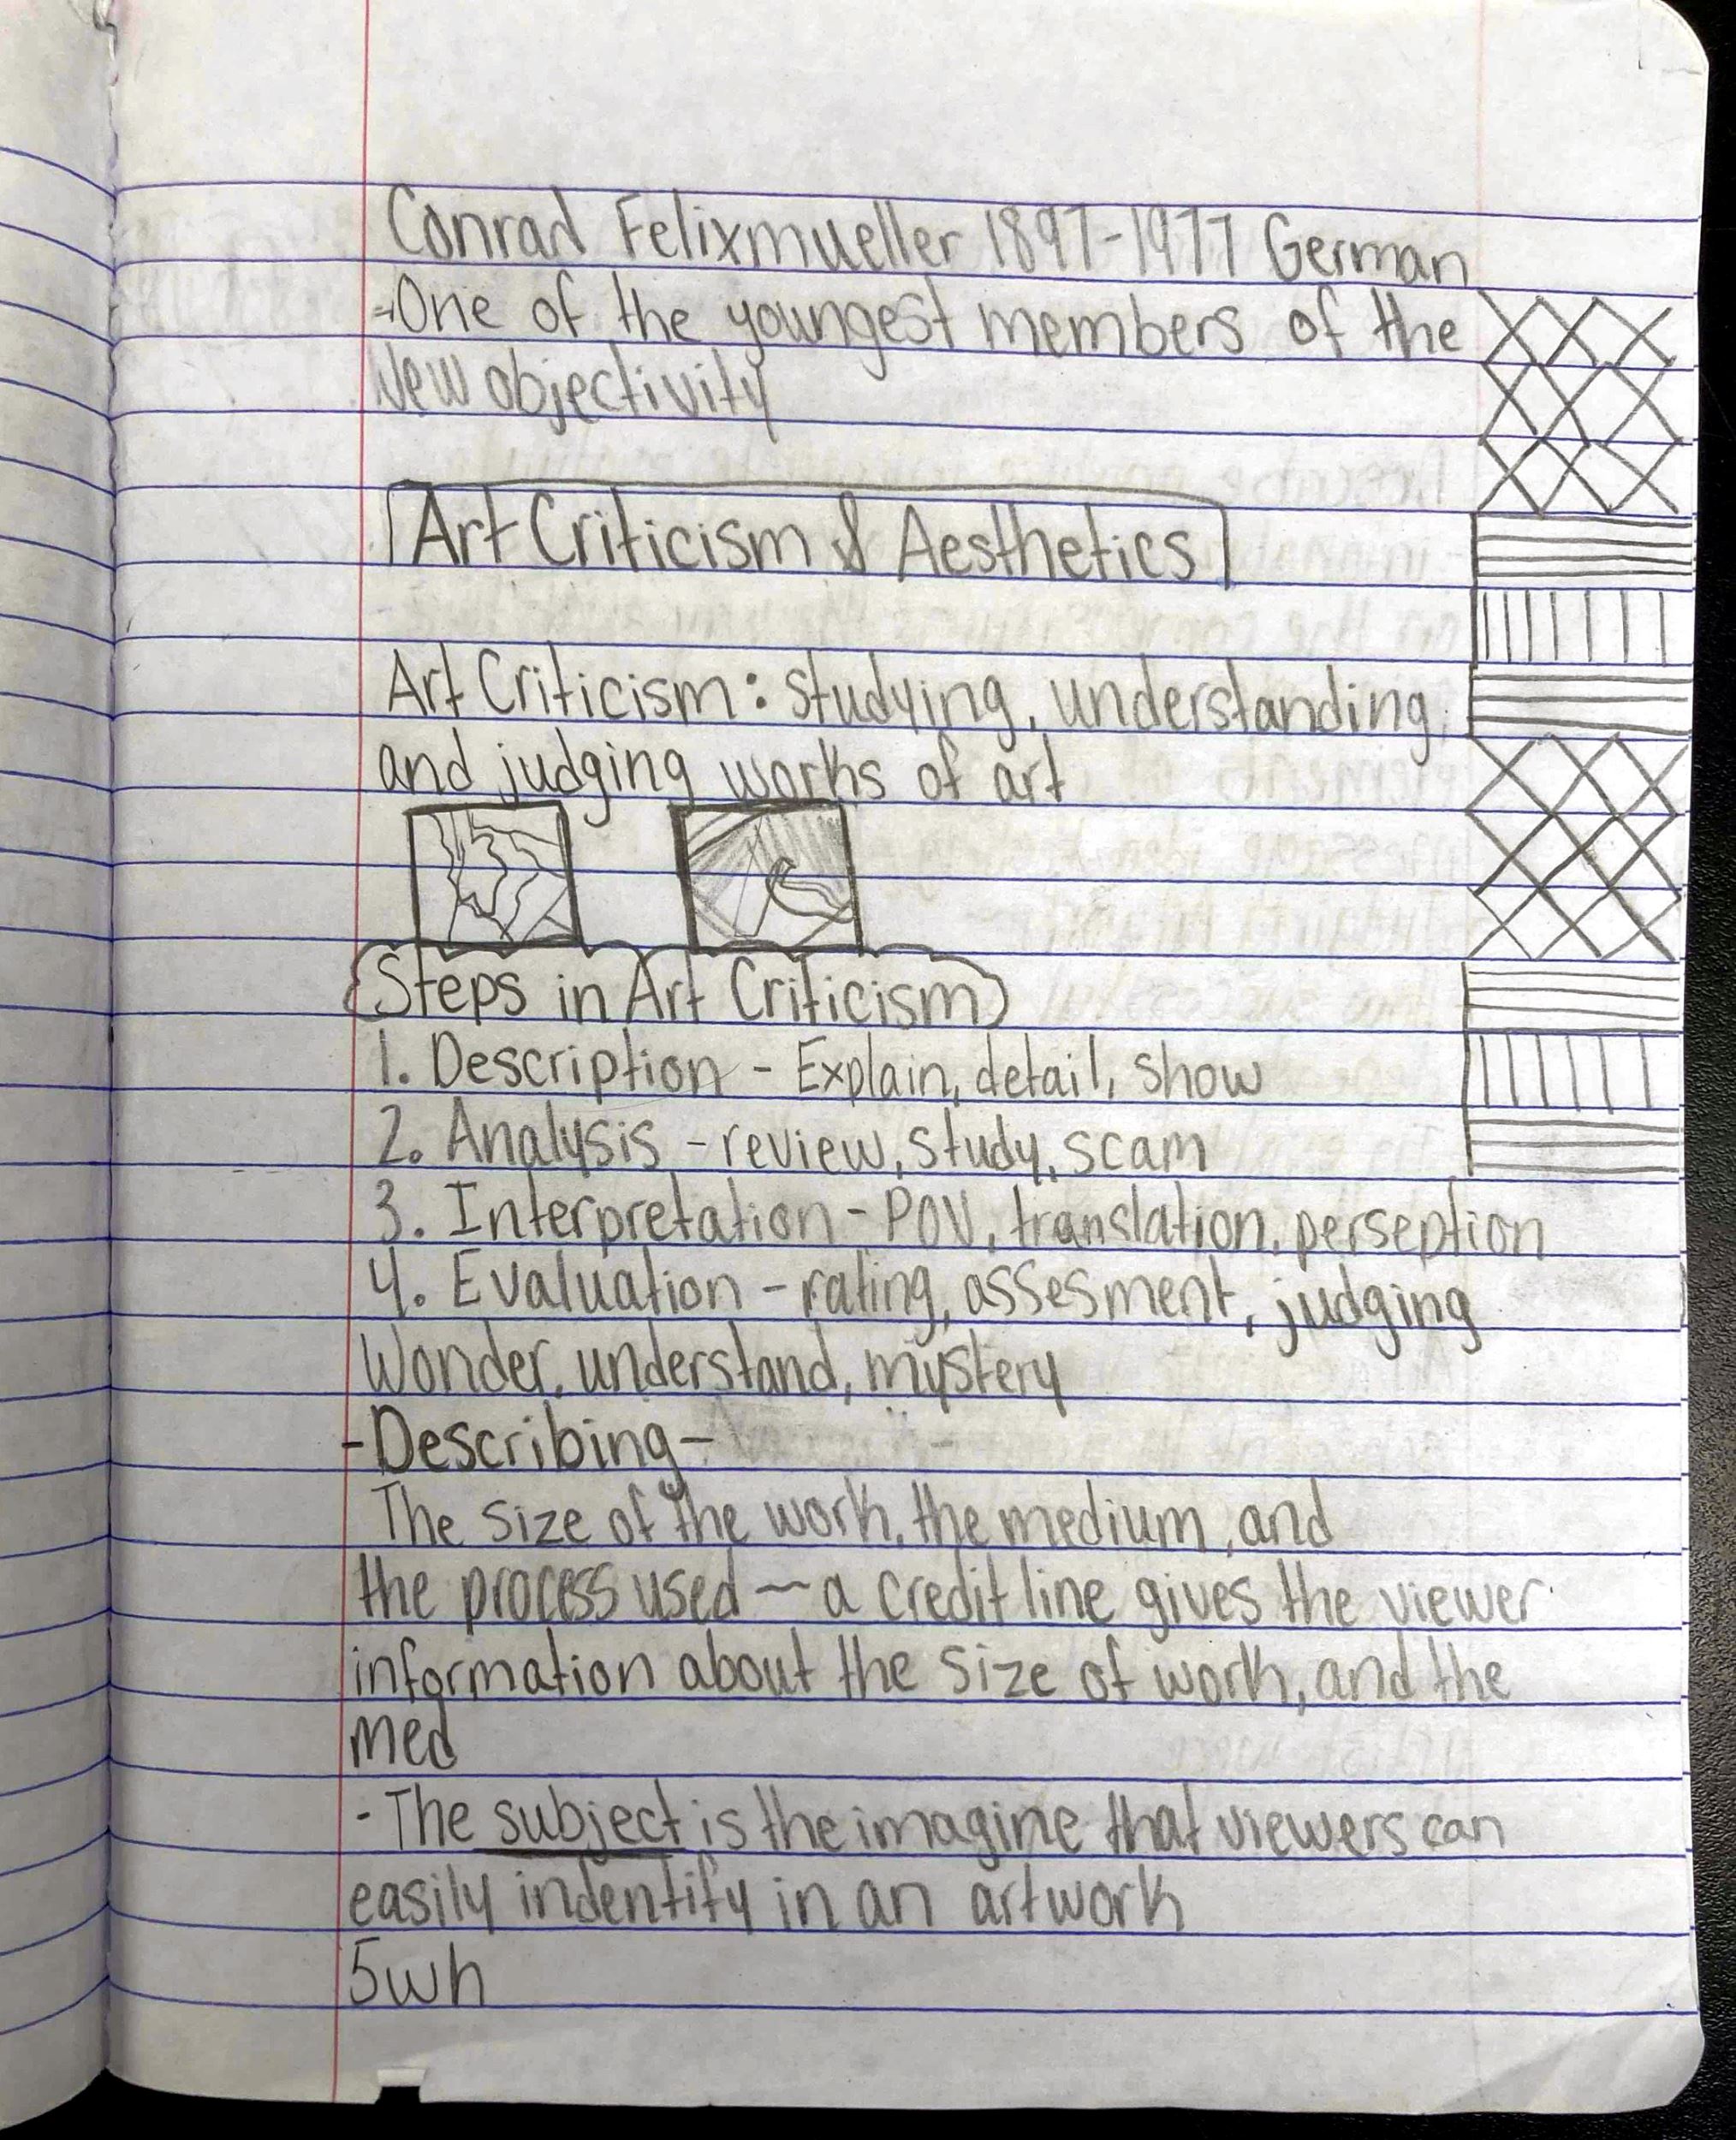 Conrad Felixmueller 1897-1977 German
-One of the youngest members of the
New objectivity
Art Criticism & Aesthetics
Art Criticism: studying, understanding
and judging works of art
Steps in Art Criticism
1. Description - Explain, detail, show
2. Analysis - review, study, scam
3. Interpretation - POV, translation, perseption
4. Evaluation - rating, assesment, judging
Wonder, understand, mystery
-Describing-
The size of the work, the medium, and
the process used — a credit line gives the viewer
information about the size of work, and the
med
- The subject is the imagine that viewers can
easily indentify in an artwork
5wh